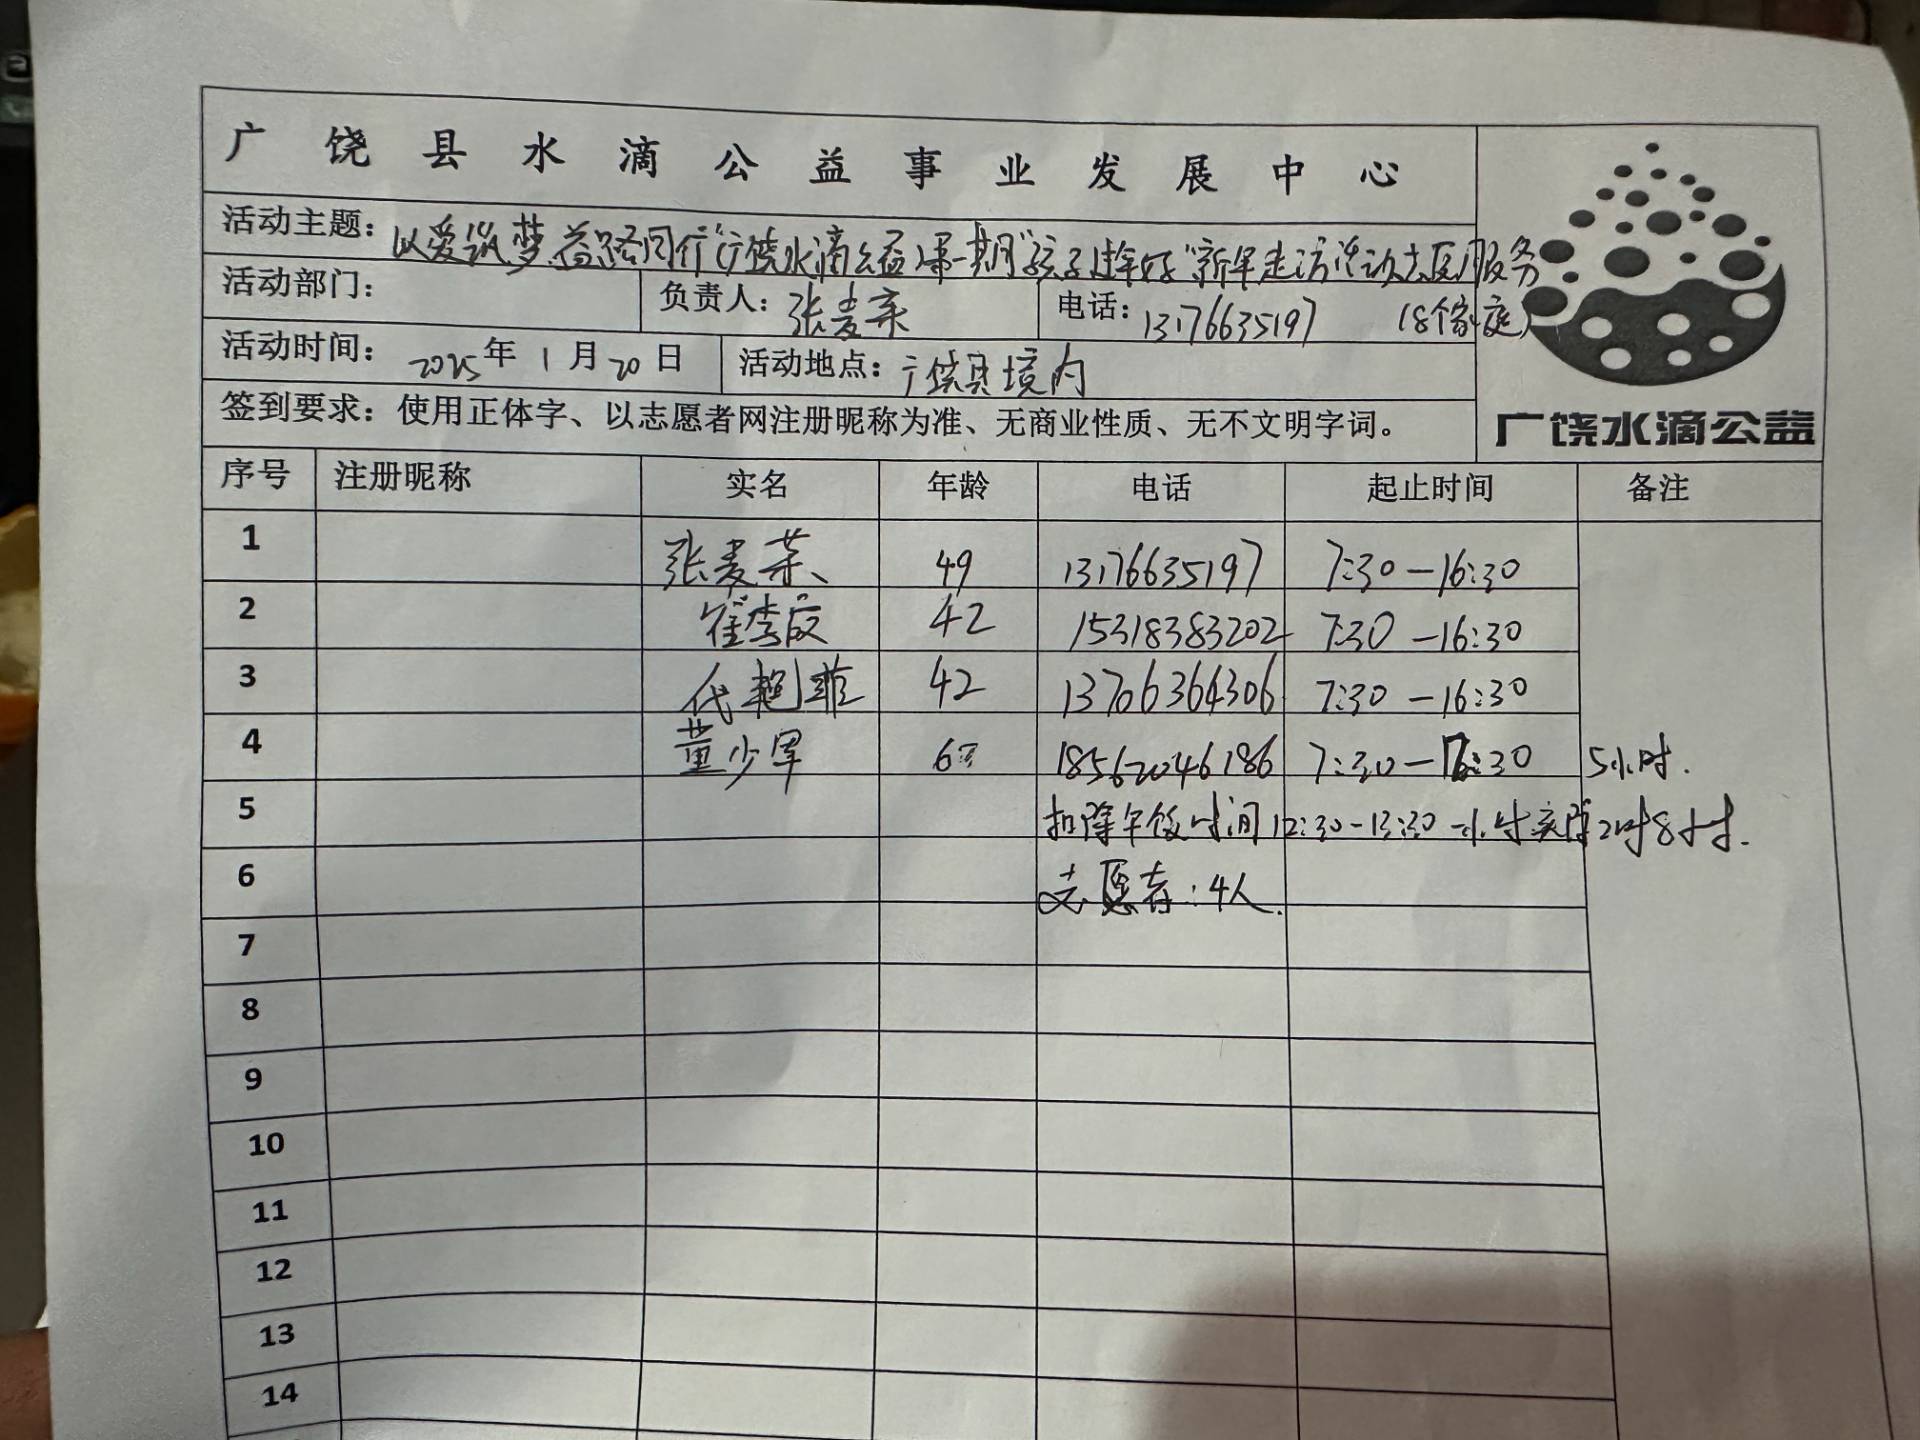 广饶县水滴公益事业发展中心
活动主题：以爱筑梦 益路同行"广饶水滴公益第一期"孩子过年好"新年走访活动志愿服务
活动部门： 负责人：张麦荣 电话：13176635197 (8个家庭)
活动时间：2025年1月20日 活动地点：广饶县境内
签到要求：使用正体字、以志愿者网注册昵称为准、无商业性质、无不文明字词。
广饶水滴公益
序号 注册昵称 实名 年龄 电话 起止时间 备注
1 张麦荣 49 13176635197 7:30-16:30
2 崔李 42 15318383202 7:30-16:30
3 代艳菲 42 13706364306 7:30-16:30
4 董少军 18562046186 7:30- :30 5小时.
5 扣除午饭时间12:30-13:30 一小时实际 时8小时.
6 志愿者:4人.
7
8
9
10
11
12
13
14